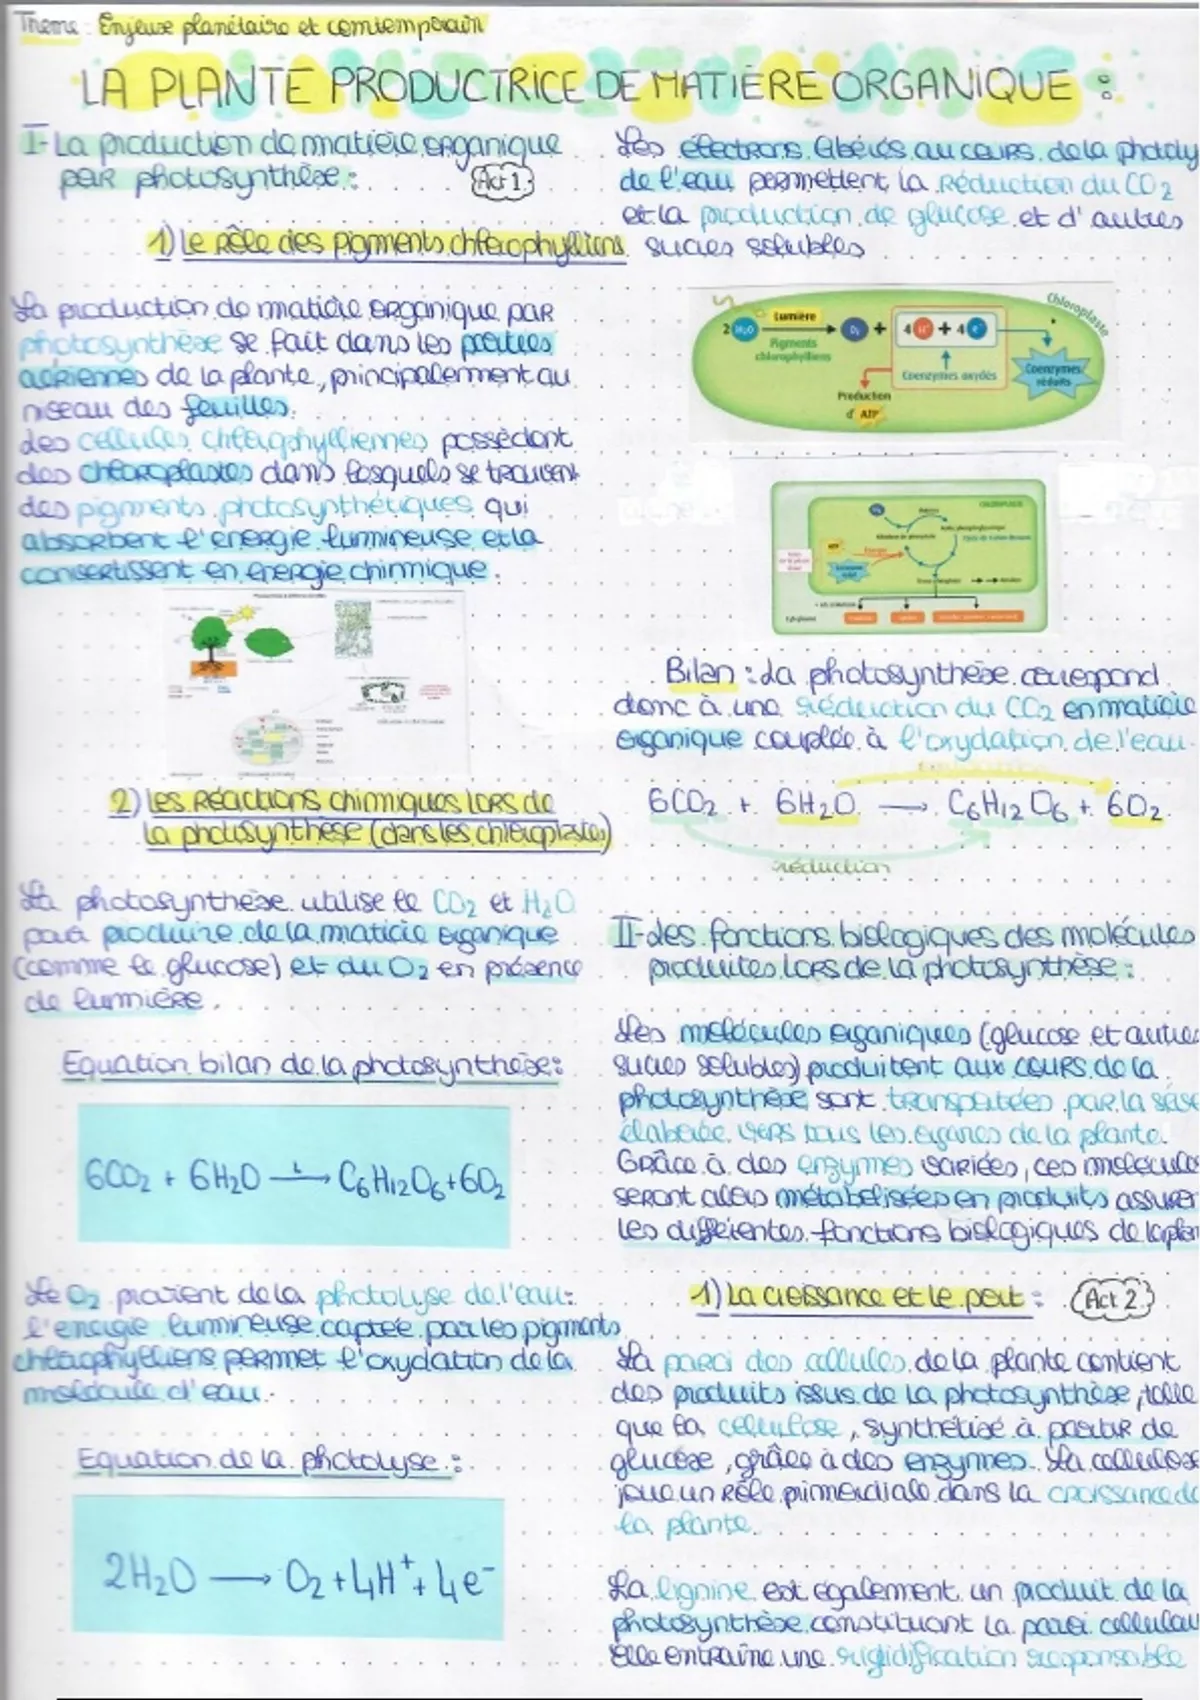 Theme : Enjeux planétaire et comtemporain
LA PLANTE PRODUCTRICE DE MATIÈRE ORGANIQUE :
I- La production de matière organique
par photosynthèse :
Act 1
1) Le Rôle des pigments chlorophylliens
La production de matière organique par
photosynthèse se fait dans les parties
aériennes de la plante, principalement au
niveau des feuilles.
des cellules chlorophylliennes possèdent
des chloroplastes dans lesquels se trouvent
des pigments photosynthétiques qui
absorbent l'énergie lumineuse et la
convertissent en énergie chimique.
2) Les Réactions chimiques lors de
la photosynthèse (dans les chloroplastes)
La photosynthèse utilise le CO2 et H2O
pour produire de la matière organique
(comme le glucose) et du O2 en présence
de lumière.
Equation bilan de la photosynthèse :
6CO2 + 6H2O → C6H12O6 + 6O2
Le O2 provient de la photolyse de l'eau :
l'énergie lumineuse captée par les pigments
chlorophylliens permet l'oxydation de la
molécule d'eau.
Equation de la photolyse :
2H2O → O2 + 4H+ + 4e-
Les électrons libérés au cours de la photoly
de l'eau permettent la réduction du CO2
et la production de glucose et d'autres
sucres solubles
Chloroplaste
Lumière
2 H2O → O2 + 4 H+ + 4 e-
Pigments
chlorophylliens
Coenzymes oxydés
Coenzymes
réduits
Production
d'ATP
Bilan : La photosynthèse correspond
donc à une réduction du CO2 en matière
organique couplée à l'oxydation de l'eau.
6CO2 + 6H2O → C6H12O6 + 6O2
réduction
II- Les fonctions biologiques des molécules
produites lors de la photosynthèse :
Les molécules organiques (glucose et autres
sucres solubles) produitent aux cours de la
photosynthèse sont transportées par la sève
élaborée vers tous les organes de la plante.
Grâce à des enzymes variées, ces molécules
seront alors métabolisées en produits assurer
les différentes fonctions biologiques de la plan
1) La croissance et le port :
Act 2
La paroi des cellules de la plante contient
des produits issus de la photosynthèse, telle
que la cellulose, synthétisé à partir de
glucose, grâce à des enzymes. La cellulose
joue un rôle primordiale dans la croissance de
la plante.
La lignine est également un produit de la
photosynthèse constituant la paroi cellulai
Elle entraîne une rigidification responsable